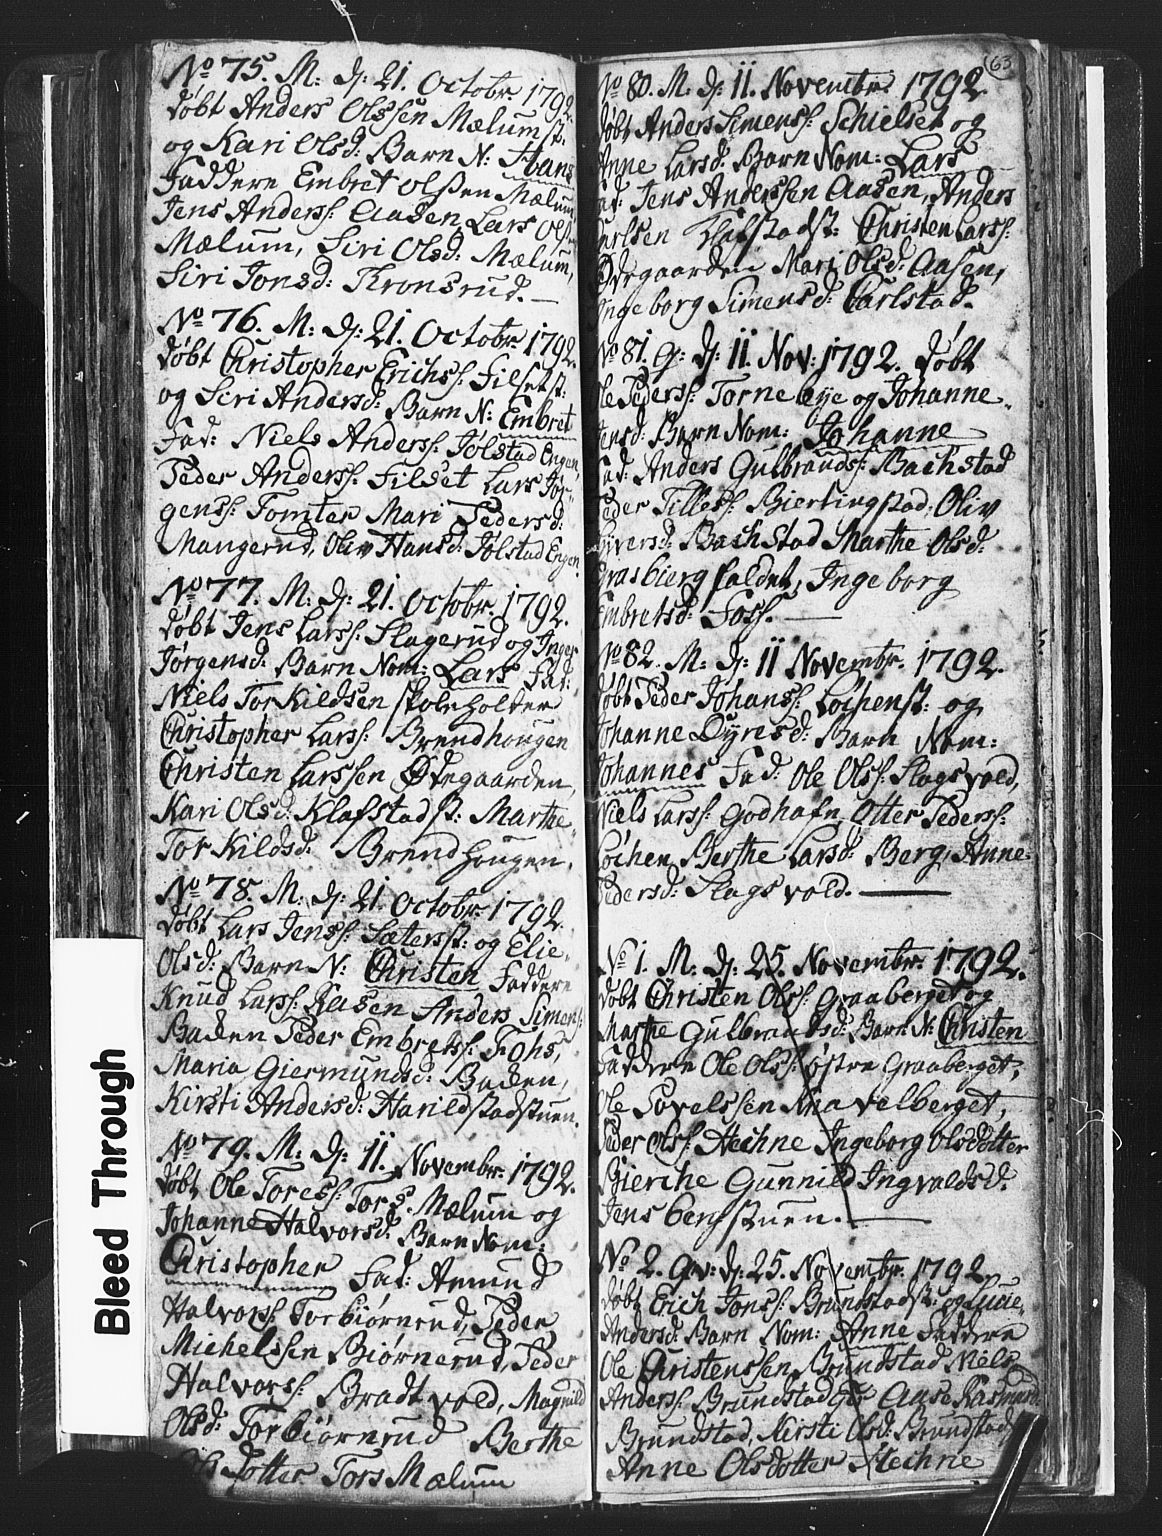 No 75. M: d: 21. Octobr. 1792.
døbt Anders Olssen Mælumst.
og Kari Olsd: Barn N: Hans
Faddere Embret Olssen Mælum
Jens Anderss: Aasen, Lars Olss
Mælum, Siri Olsd: Mælum,
Siri Jonsd: Kronsrud. —
No 76. M: d: 21. Octobr. 1792.
døbt Christopher Erichss: Filsetst:
og Siri Andersd: Barn N: Embret
Fad: Niels Anderss: Jølstad Engen,
Peder Anderss: Filset Lars Jør-
genss: Tomter Mari Pedersd:
Mangerud, Oliv Hansd: Jølstad Engen.
No 77. M: d: 21. Octobr. 1792.
døbt Jens Larss: Slagerud og Inger
Jørgensd: Barn Nom: Lars Fad:
Niels Torkildsen skoleholder
Christopher Larss: Brendhougen
Christen Larssen Ødegaarden,
Kari Olsd: Klafstadst: Marthe
Torkildsd: Brendhougen.
No 78. M: d: 21. Octobr. 1792.
døbt Lars Jenss: Sæterst: og Elie
Olsd: Barn N: Christen Faddere
Knud Larss: Aasen Anders Simens:
Baden Peder Embretss: Fohs,
Maria Giermundsd: Baden,
Kirsti Andersd: Harildstadstuen.
No 79. M. d: 11. Novembr. 1792.
døbt Ole Toress: Tors Mælum og
Johanne Halvorsd: Barn Nom:
Christopher Fad: Amund
Halvorss: Torbiørnrud, Peder
Michelssen Biørnerud, Peder
Halvorss: Bradtvold, Magnild
Olsd: Torbiørnrud Berthe
Olsdotter Tors Mælum
63
No 80. M. d: 11. Novembr. 1792
døbt Anders Simenss: Schielset og
Anne Larsd: Barn Nom: Lars
Fad: Jens Anderssen Aasen, Anders
Carlsen Klafstadst: Christen Larss:
Ødegaarden Mari Olsd: Aasen,
Ingeborg Simensd: Carlstad.
No 81. G: d: 11. Nov: 1792. døbt
Ole Pederss: Tornebye og Johanne
Jensd: Barn Nom: Johanne
Fad: Anders Gulbrandss: Bachstad
Peder Tilless: Bierlingstad, Oliv
Syversd: Bachstad Marthe Olsd:
Grasbierg faldet, Ingeborg
Embretsd: Foss. —
No 82. M. d: 11 Novembr. 1792.
døbt Peder Johanss: Løchenst: og
Johanne Dyresd: Barn Nom:
Johannes Fad: Ole Olss: Slagsvold,
Niels Larss: Godhafn, Otter Pederss:
Løchen, Berthe Larsd: Berg, Anne
Pedersd: Slagsvold. —
No 1. M. d: 25. Novembr. 1792.
døbt Christen Olss: Graaberget og
Marthe Gulbrandsd: Barn N: Christen
Faddere Ole Olss: østre Graaberget,
Ole Sovelssen Knavelberget,
Peder Olss: Hechne Ingeborg Olsdotter
Bierche Gunnild Ingvaldsd.
Jensbergstuen. —
No 2. Qv: d: 25. Novembr. 1792
døbt Erich Jonss: Brundstadst: og Lucie
Andersd: Barn Nom: Anne Faddere
Ole Christenssen Brundstad Niels
Anderss: Brundstad Eje Aase Rasmusd:
Brundstad, Kirsti Olsd: Brundstad,
Anne Olsdotter Hechne
Bleed Through